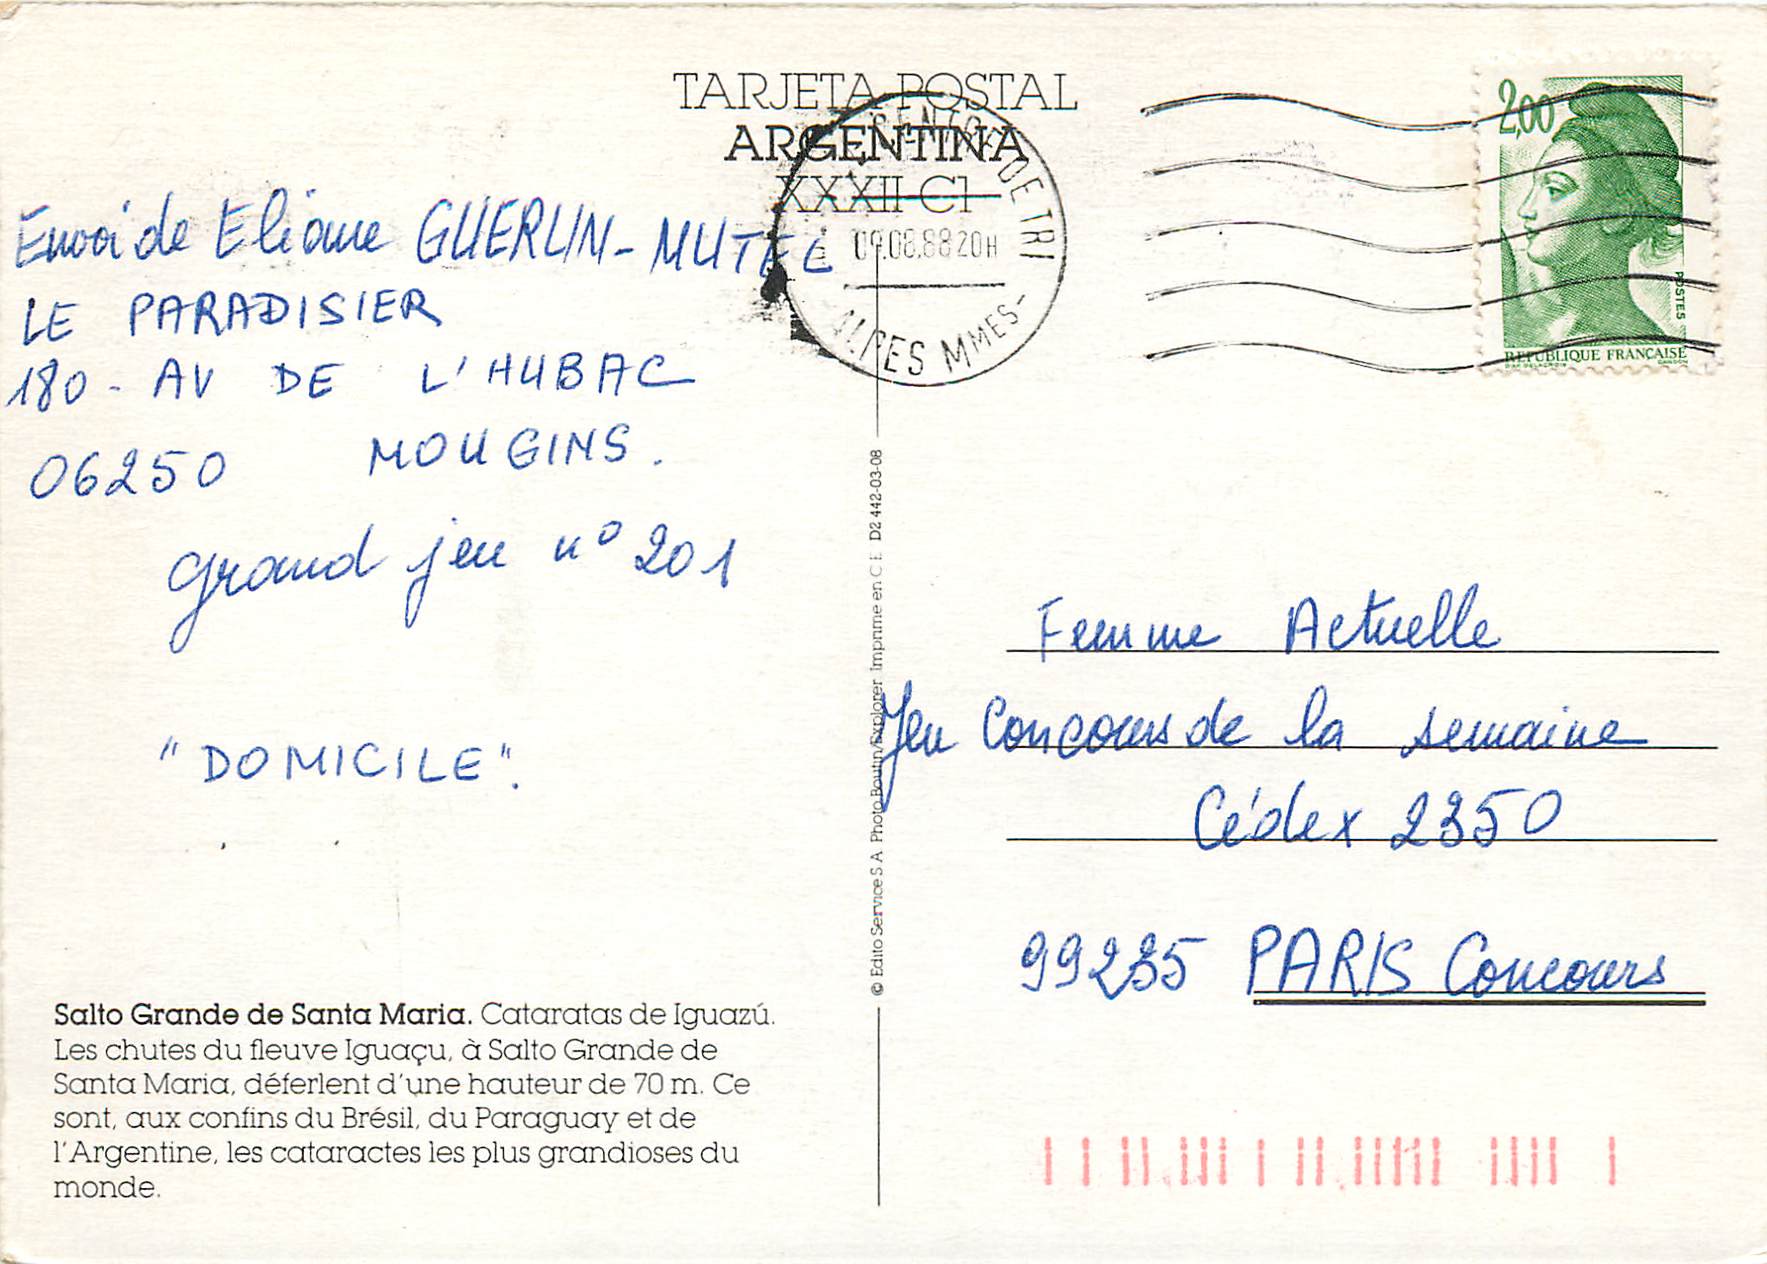 TARJETA POSTAL
ARGENTINA
XXXII-C1
CENTRE DE TRI
09.08.88 20H
ALPES MMES-
2,00
POSTES
REPUBLIQUE FRANÇAISE
D'AP. DELACROIX GANDON
Envoi de Eliane GUERLIN-MUTEL
LE PARADISIER
180 - AV DE L'HUBAC
06250 MOUGINS.
Grand jeu n° 201
"DOMICILE".
Salto Grande de Santa Maria. Cataratas de Iguazú.
Les chutes du fleuve Iguaçu, à Salto Grande de
Santa Maria, déferlent d'une hauteur de 70 m. Ce
sont, aux confins du Brésil, du Paraguay et de
l'Argentine, les cataractes les plus grandioses du
monde.
© Edito Service S.A. Photo Boutin/Explorer Imprimé en C.E. D2 442-03-08
Femme Actuelle
Jeu Concours de la semaine
Cédex 2350
99235 PARIS Concours